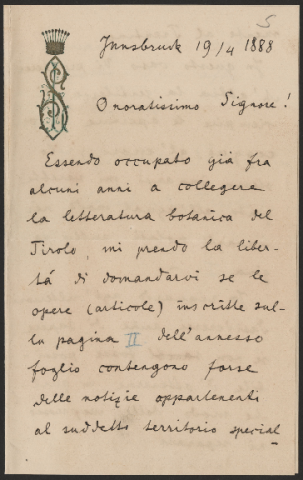 5
Innsbruck 19/4 1888
Onoratissimo Signore!
Essendo occupato già fra
alcuni anni a collegera
la letteratura botanica del
Tirolo, mi prendo la liber-
tá di domandarvi se le
opere (articole) inscritte sul-
la pagina II dell'annesso
foglio contengono forse
delle notizie appartenenti
al suddetto territorio special